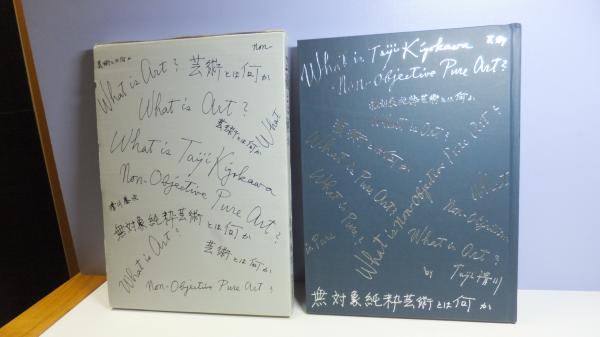 芸術とは何か
non-
What is Art? 芸術とは何か
What is Art?
芸術とは何か
What
What is Taiji Kiyokawa
Non-Objective Pure Art?
清川泰次
無対象純粋芸術とは何か
What is Art?
芸術とは何か
Non-Objective Pure Art?
芸術
What is Taiji Kiyokawa
Non-Objective Pure Art?
無対象純粋芸術とは何か
What is Art?
芸術とは何か
What is Pure Art?
What is Pure?
What is non-Objective Pure Art?
Non-Objective
in Pure
What is Art?
by Taiji 清川
無対象純粋芸術とは何か